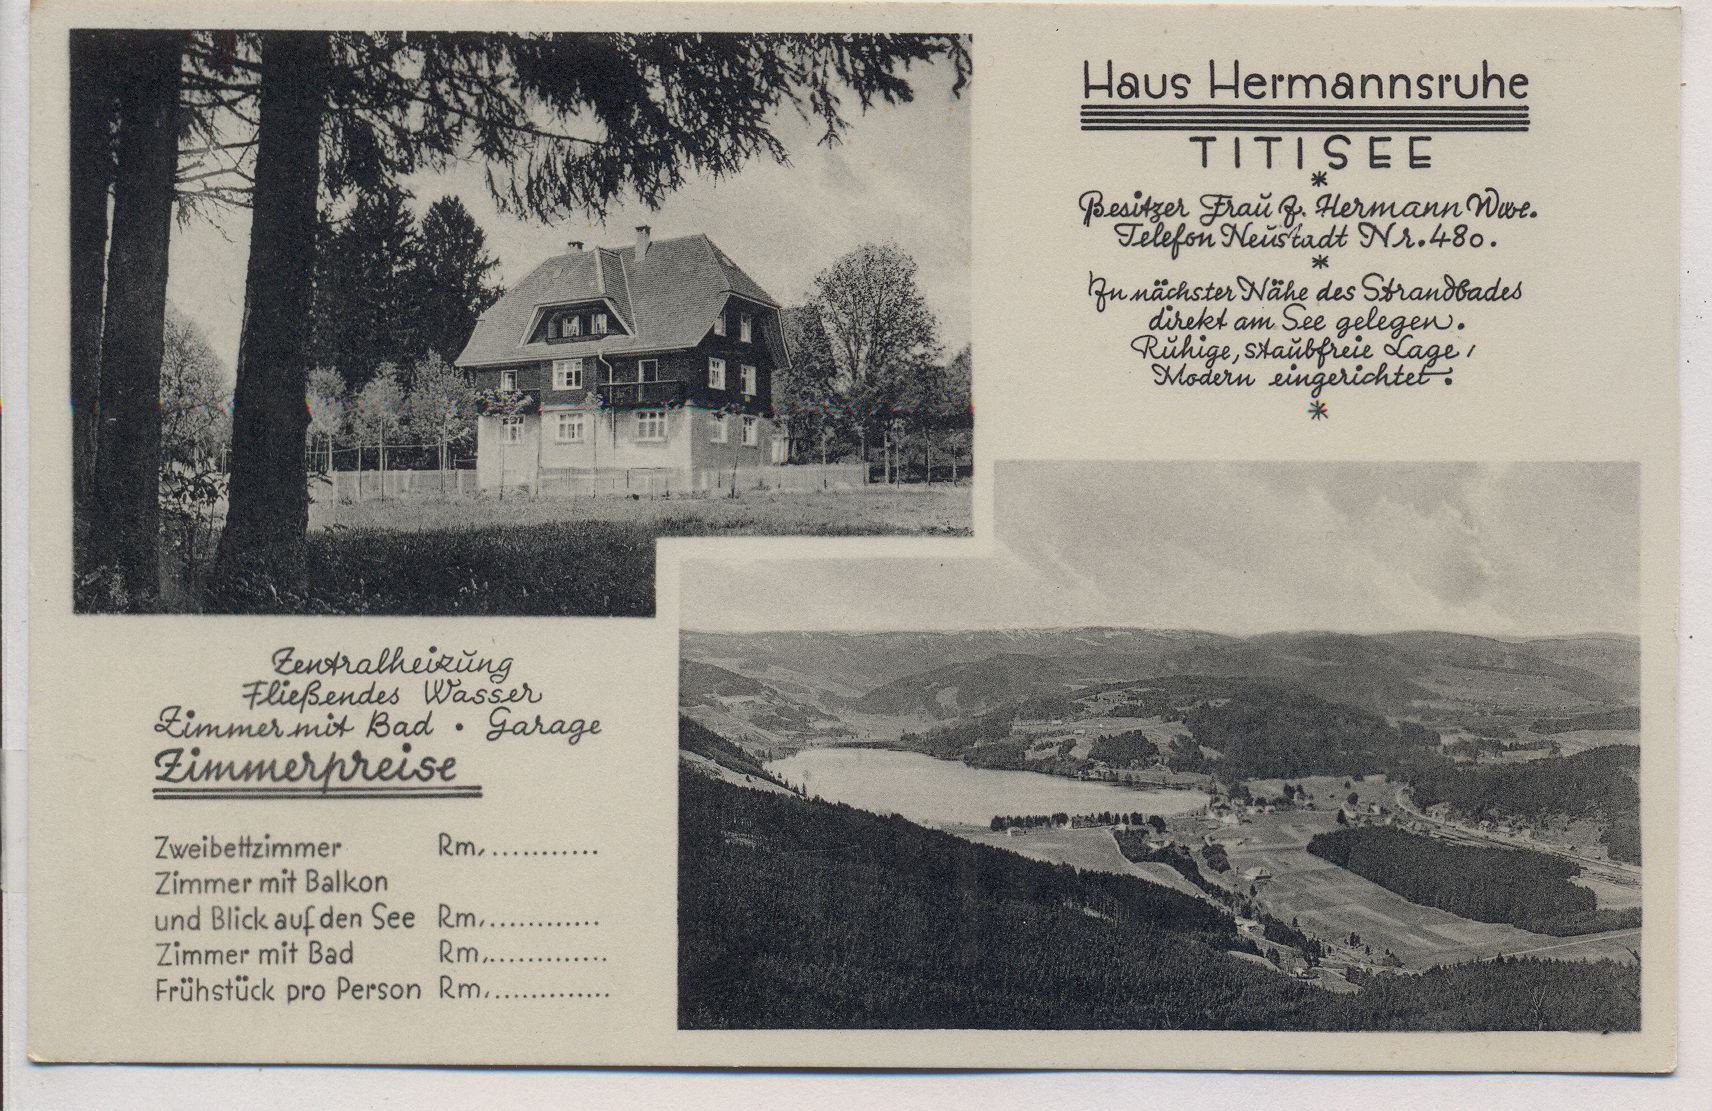 Haus Hermannsruhe
TITISEE
*
Besitzer Frau F. Hermann Wwe.
Telefon Neustadt Nr. 480.
*
In nächster Nähe des Strandbades
direkt am See gelegen.
Ruhige, staubfreie Lage,
Modern eingerichtet.
*
Zentralheizung
Fließendes Wasser
Zimmer mit Bad • Garage
Zimmerpreise
Zweibettzimmer Rm,............
Zimmer mit Balkon
und Blick auf den See Rm,............
Zimmer mit Bad Rm,.............
Frühstück pro Person Rm,.............